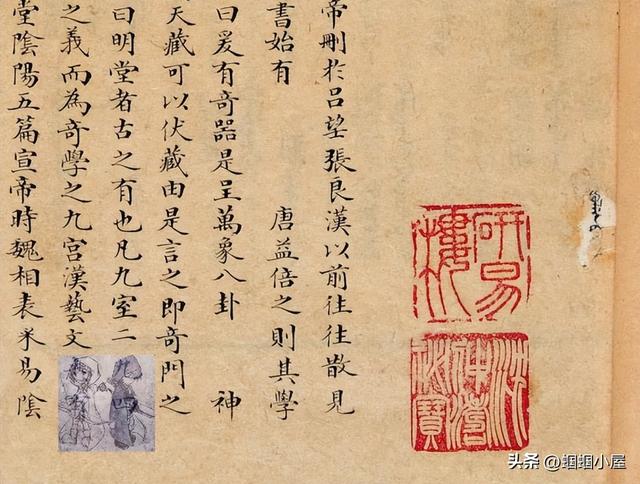 帝刪於呂望張良漢以前往往散見
書始有 唐益倍之則其學
曰爰有奇器是呈萬象八卦 神
天藏可以伏藏由是言之即奇門之
曰明堂者古之有也凡九室二
之義而為奇學之九宮漢藝文
堂陰陽五篇宣帝時魏相表采易陰
研易樓
沈仲濤秘寶
头条 @蝈蝈小屋